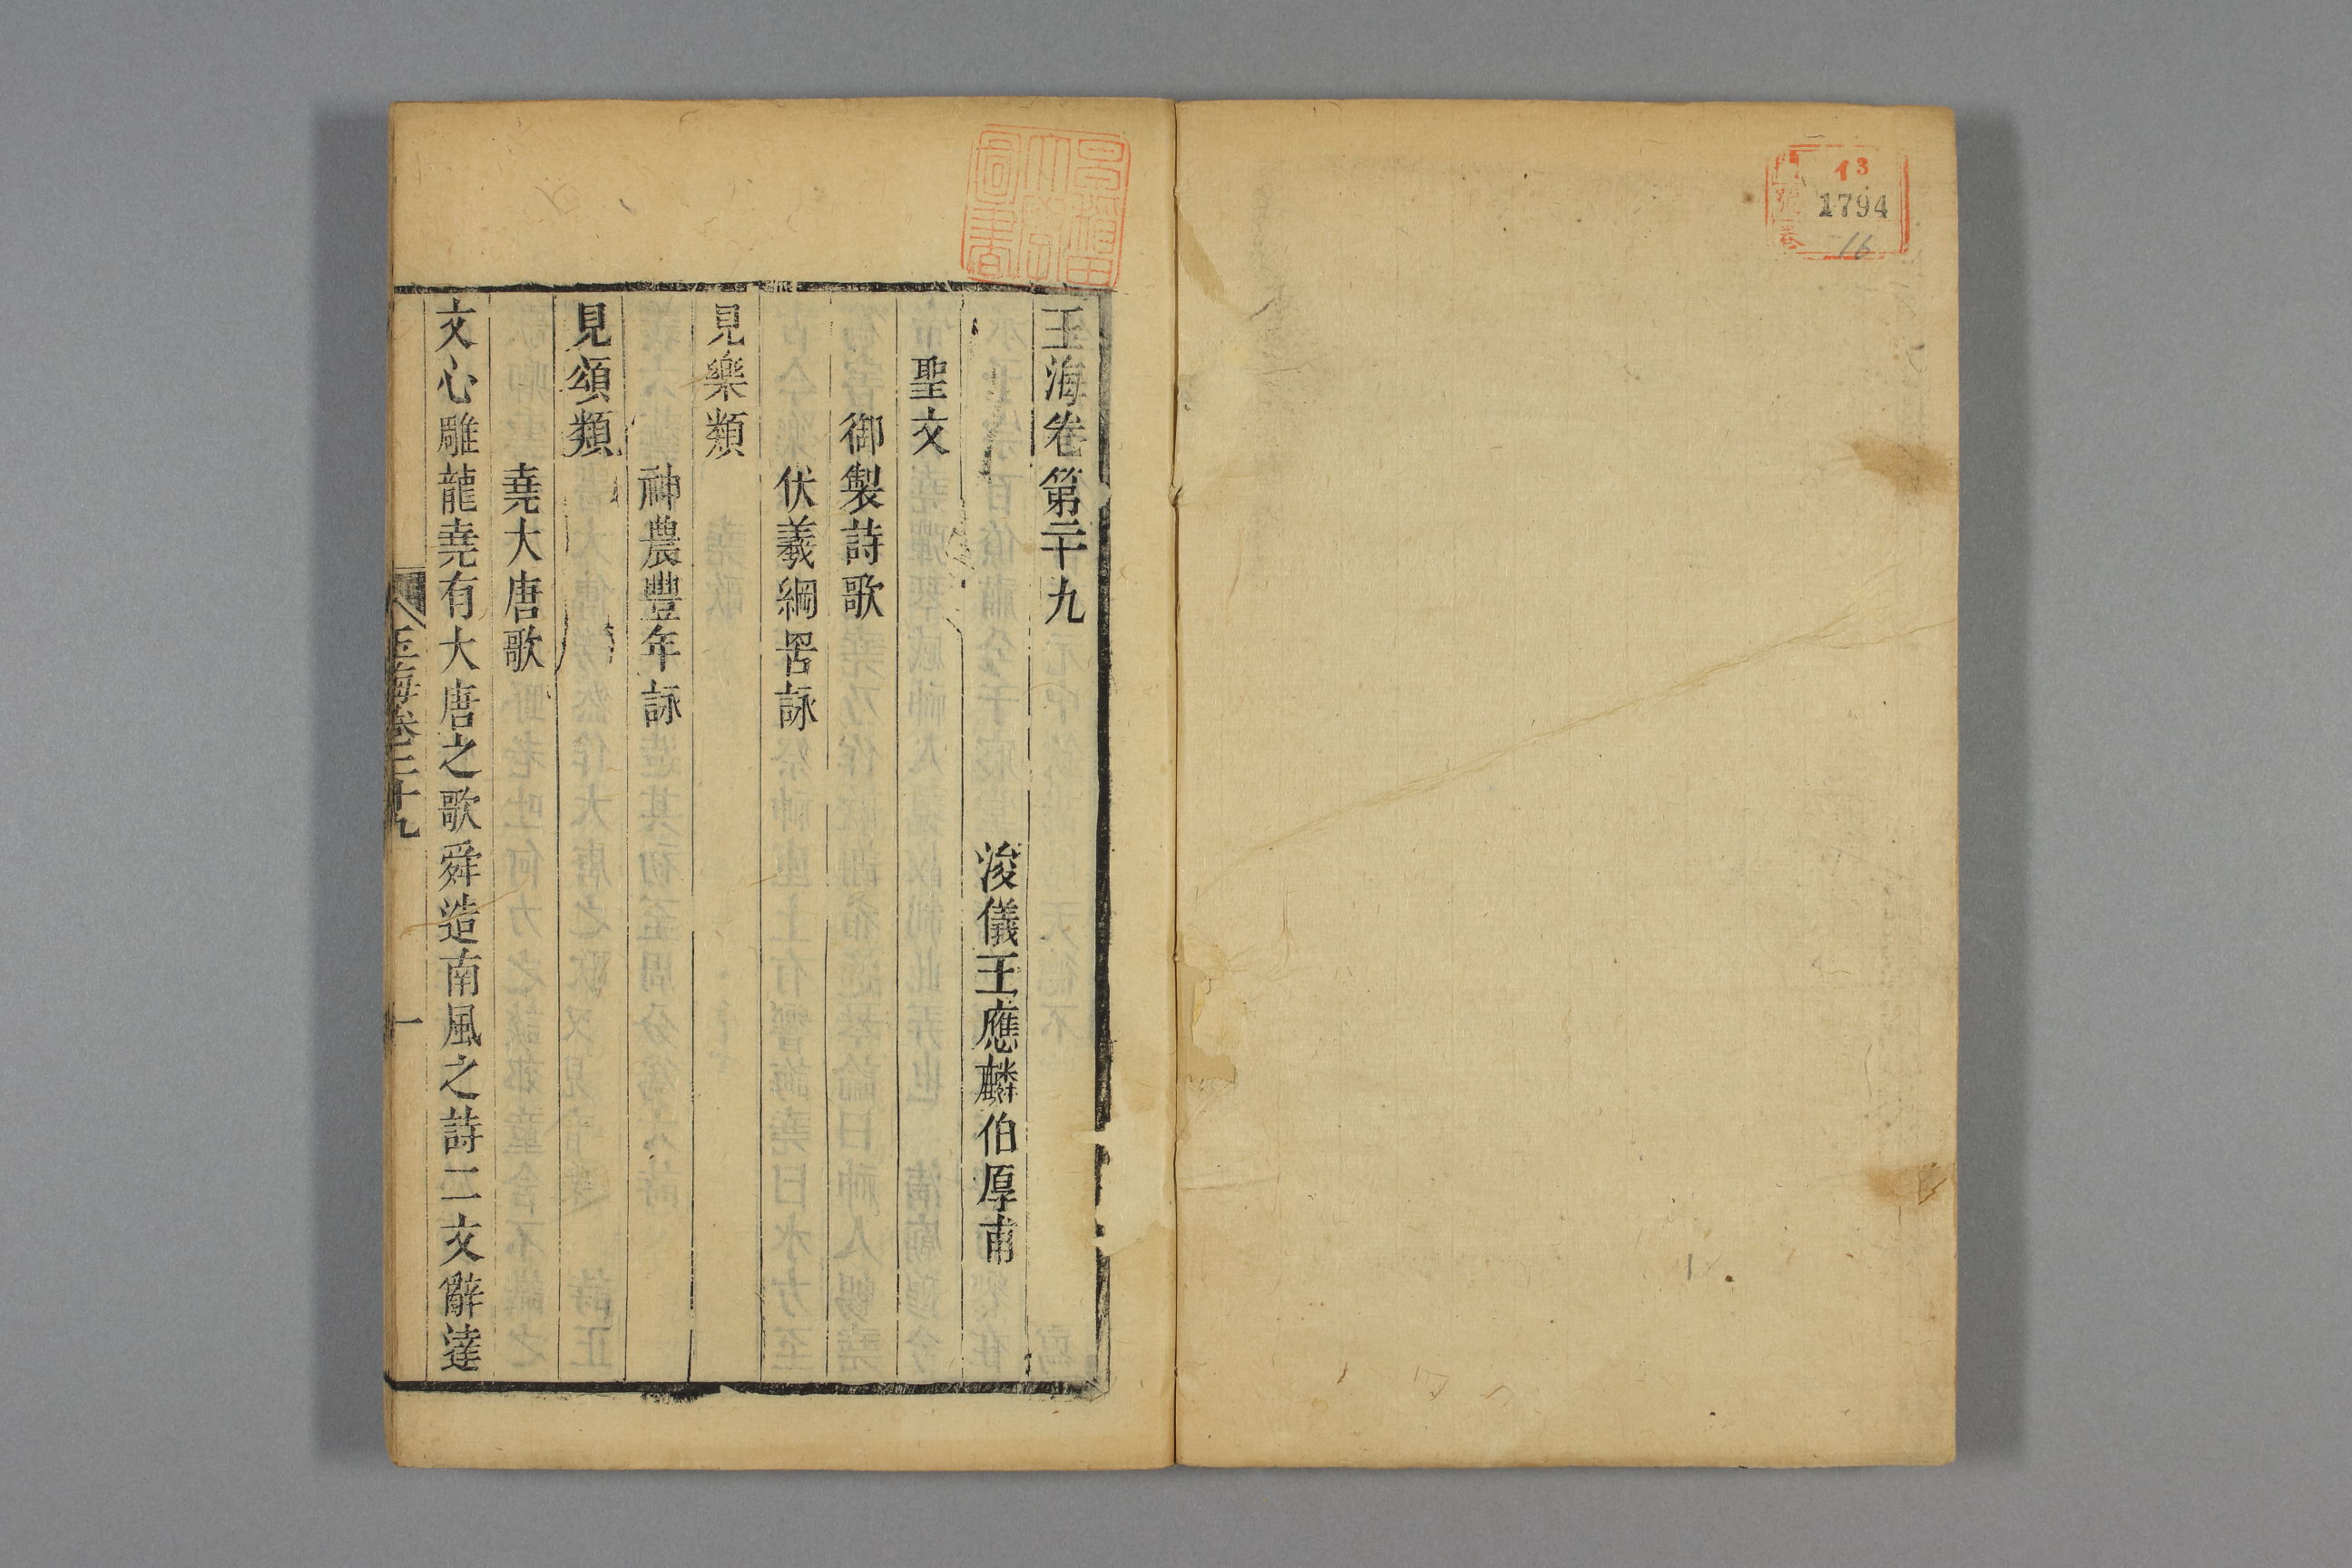 13
1794
16
玉海卷第二十九
浚儀王應麟伯厚甫
聖文
御製詩歌
伏羲綱罟詠
見樂類
神農豐年詠
見頌類
堯大唐歌
文心雕龍堯有大唐之歌舜造南風之詩二文辭達
玉海卷二十九
一